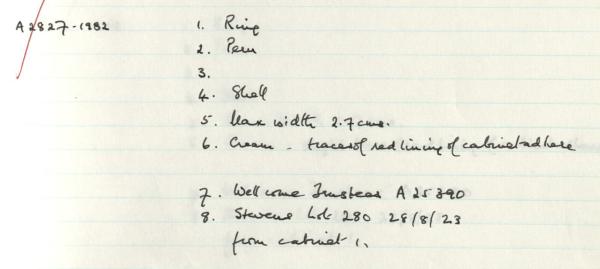 A2827-1982 1. Ring
2. Peru
3.
4. Shell
5. Max width 2.7 cms.
6. Cream - traces of red lining of cabinet adhere
7. Wellcome Trustees A 25390
8. Stevens Lot 280 28/8/23
from cabinet 1.